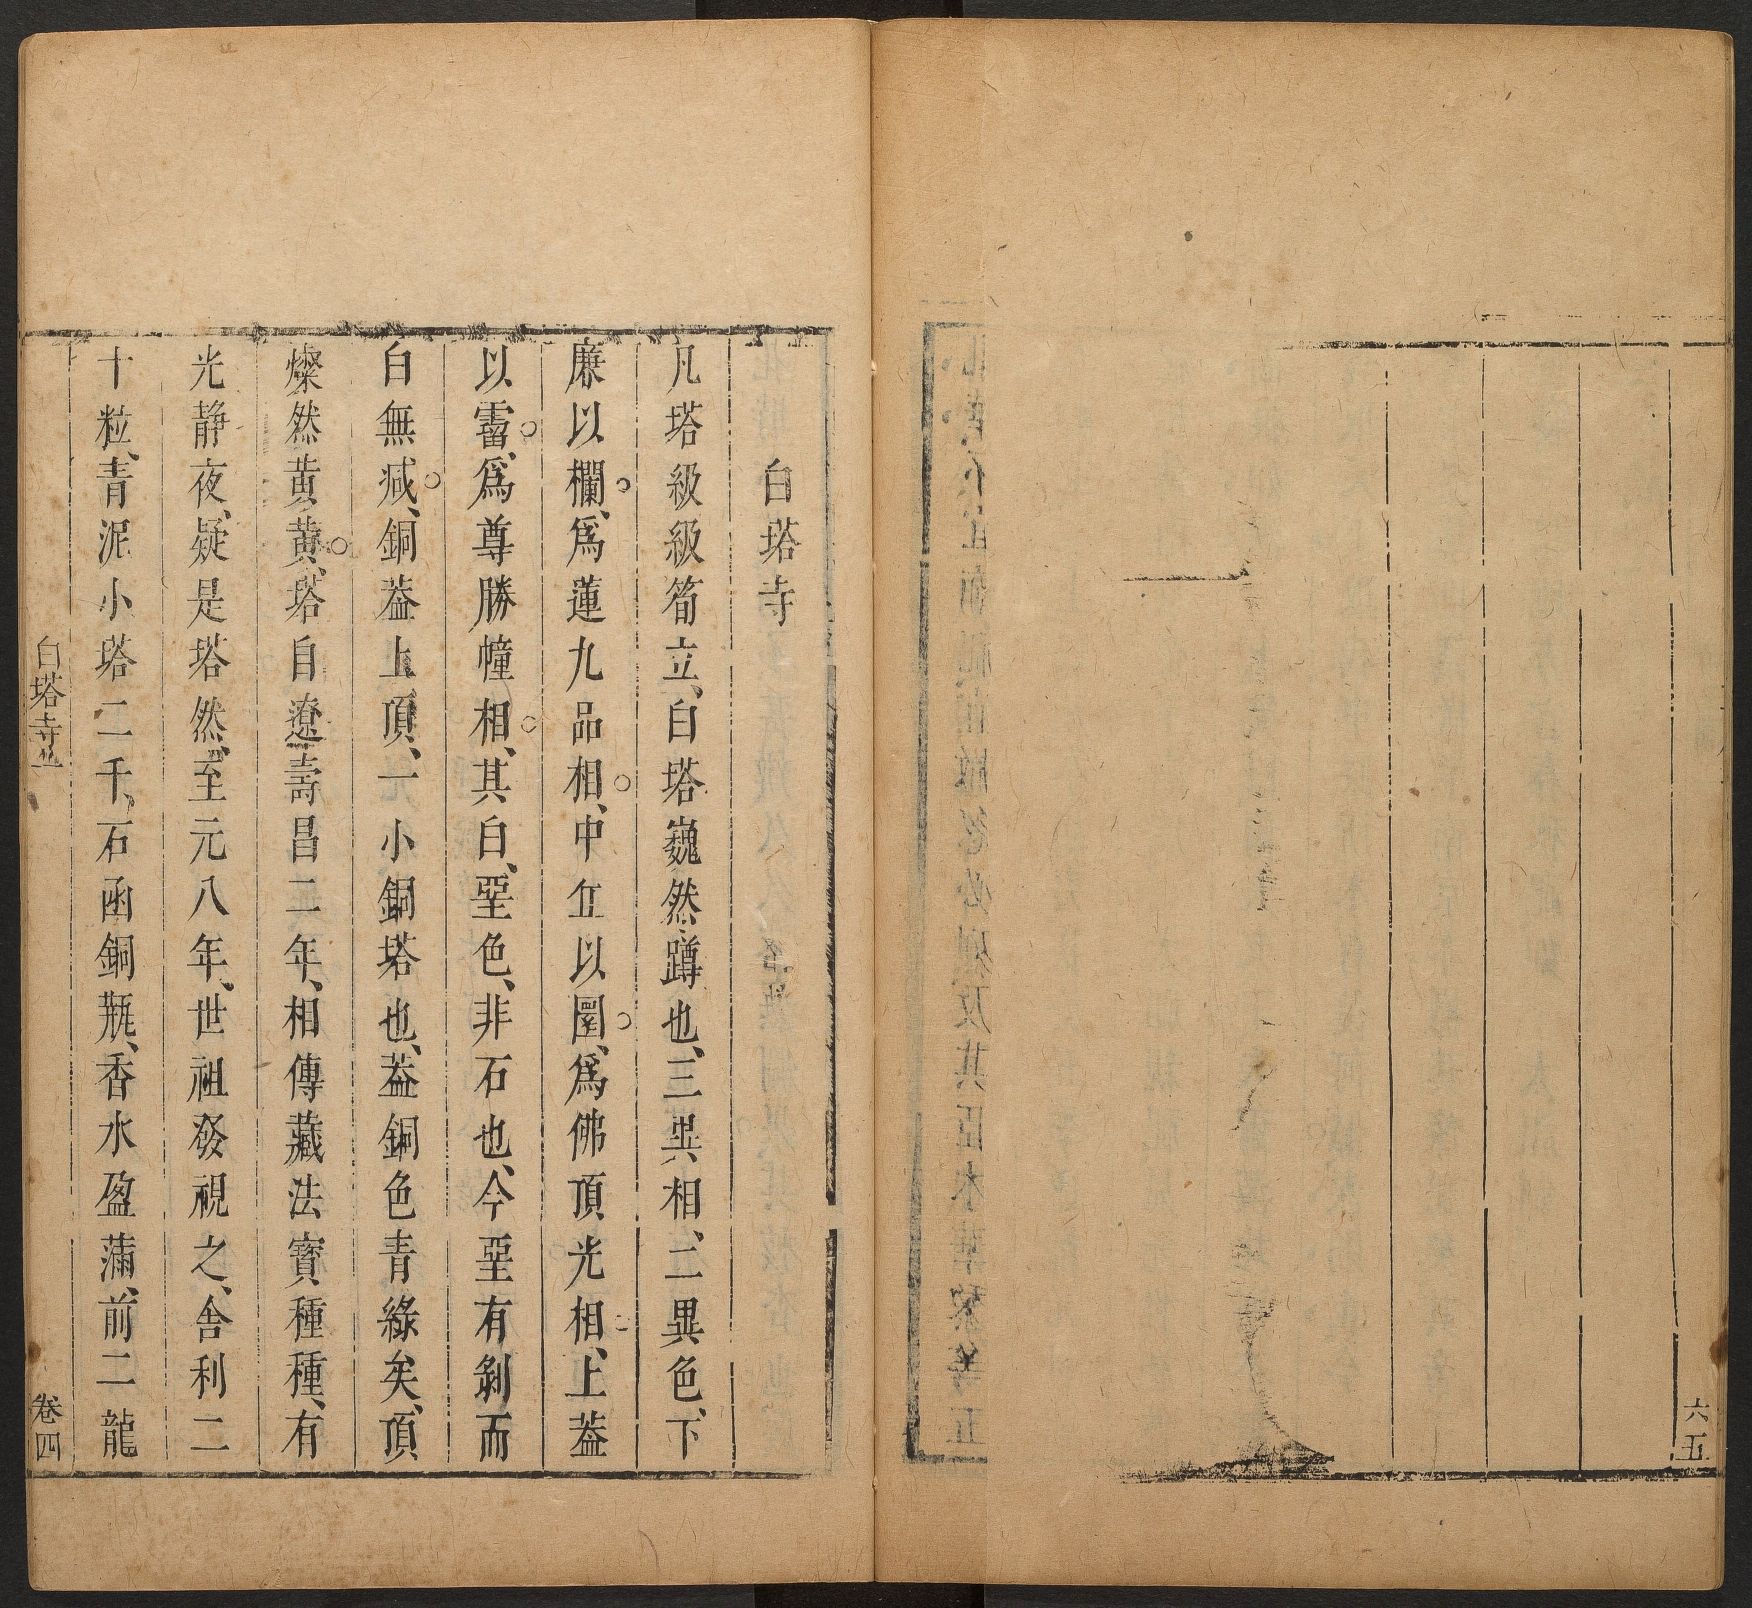 六五
白塔寺
凡塔級級筍立、白塔巍然蹲也、三異相、二異色、下
廉以欄、爲蓮九品相、中丘以圜、爲佛頂光相、上葢
以霤、爲尊勝幢相、其白、堊色、非石也、今堊有剝而
白無減、銅葢上頂、一小銅塔也、葢銅色青綠矣、頂
燦然黄黄、塔自遼壽昌二年、相傳藏法寶種種、有
光静夜、疑是塔然、至元八年、世祖發視之、舍利二
十粒、青泥小塔二千、石函銅瓶、香水盈滿、前二龍
白塔寺
卷四